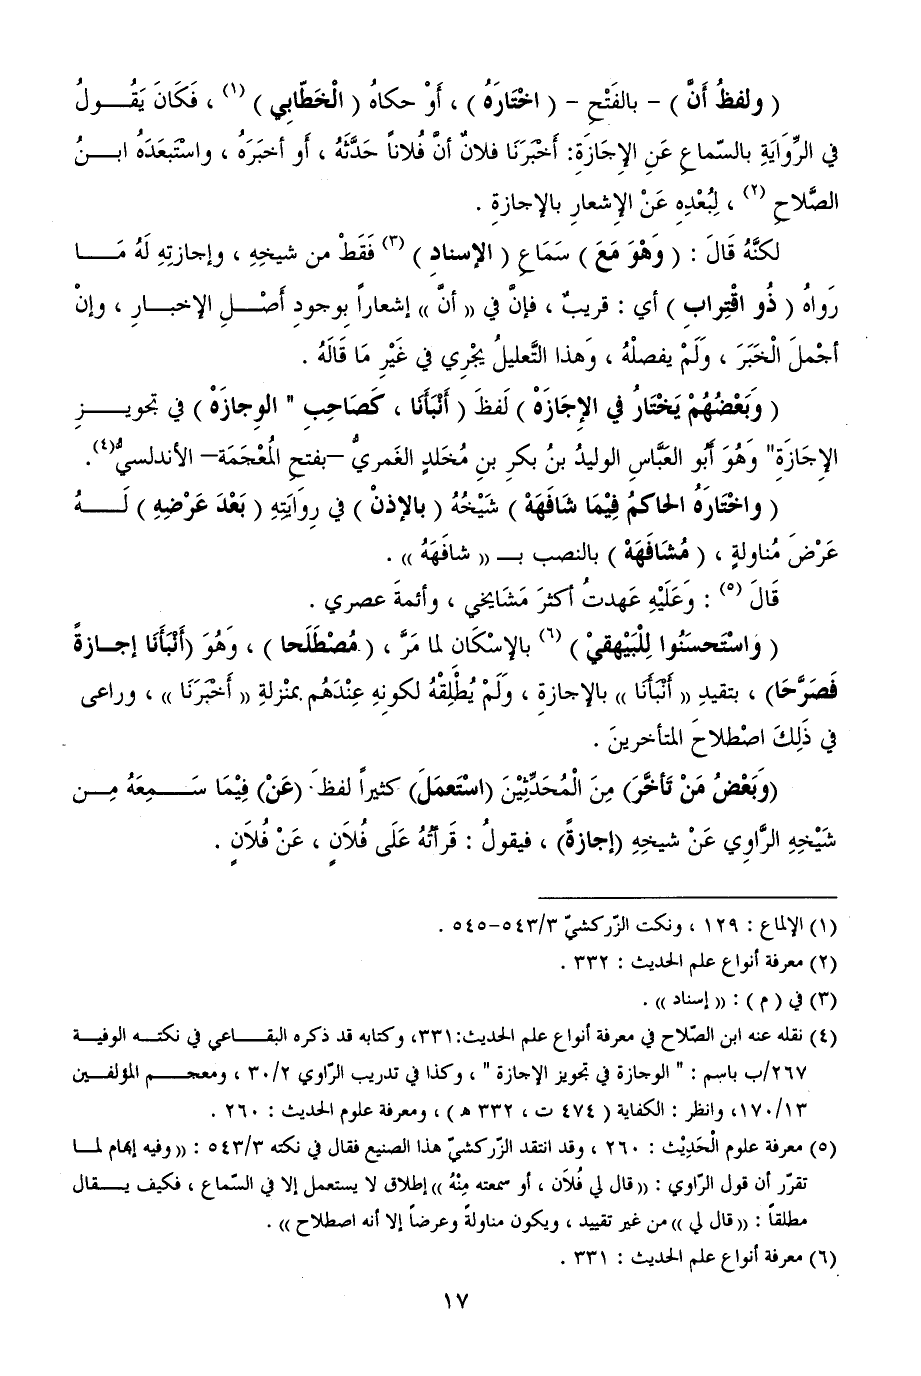 ( ولفظُ أَنَّ ) – بالفَتْحِ – ( اخْتَارَهُ ) ، أَوْ حكاهُ ( الْخَطَّابي ) (١) ، فَكَانَ يَقُـــولُ
في الرِّوَايَةِ بالسّماعِ عَنِ الإِجَازَةِ: أَخْبَرَنَا فلانٌ أنَّ فُلاناً حَدَّثَهُ ، أو أخبَرَهُ ، واسْتَبعَدَهُ ابــنُ
الصَّلاحِ (٢) ، لِبُعْدِهِ عَنْ الإِشعارِ بالإجازةِ .
لكنَّهُ قَالَ : ( وَهْوَ مَعَ ) سَمَاعِ ( الإسنادِ ) (٣) فَقَطْ من شيخِهِ ، وإجازتِهِ لَهُ مَـــا
رَواهُ ( ذُو اقْتِرابِ ) أي : قريبٌ ، فإنَّ في « أنَّ » إشعاراً بوجودِ أَصْــلِ الإخبـــارِ ، وإنْ
أجْملَ الْخَبَرَ ، ولَمْ يفصلْهُ ، وَهذا التَّعليلُ يجْرِي في غَيْرِ مَا قَالَهُ .
( وَبَعْضُهُمْ يَخْتَارُ في الإجَازَهْ ) لَفظَ ( أَنْبَأَنَا ، كَصَاحِبِ " الوِجازَهْ ) في تجويـــزِ
الإِجَازَةِ" وَهُوَ أَبُو العَبَّاسِ الوليدُ بنُ بكرِ بنِ مُخَلدٍ الغَمريُّ –بفتحِ الْمُعْجَمَةِ– الأندلسيُّ(٤).
( واخْتَارَهُ الحاكمُ فِيْمَا شَافَهَهْ ) شَيْخُهُ ( بالإذنْ ) في رِوَايَتِهِ ( بَعْدَ عَرْضِهِ ) لَـــهُ
عَرْضَ مُناولةٍ ، ( مُشَافَهَهْ ) بالنصب بــ « شافَهَهُ » .
قَالَ (٥) : وَعَلَيْهِ عَهدتُ أكثرَ مَشَايخي ، وأئمةَ عصري .
( وَاسْتَحسَنُوا لِلْبَيْهقيْ ) (٦) بالإسْكَان لما مَرَّ ، ( مُصْطَلَحا ) ، وهُوَ (أَنْبَأَنَا إجــازةً
فَصَرَّحَا) ، بتقيدِ « أَنْبَأَنَا » بالإجازةِ ، ولَمْ يُطْلِقْهُ لكونِهِ عِنْدَهُم بمنْزلةِ « أَخْبَرَنَا » ، وراعى
في ذَلِكَ اصْطلاحَ المتأخرينَ .
(وَبَعْضُ مَنْ تَأخَّرَ) مِنَ الْمُحَدِّثِيْنَ (اسْتَعمَلَ) كثيراً لفظَ (عَنْ) فِيْمَا سَـــمِعَهُ مِـــن
شَيْخِهِ الرَّاوِي عَنْ شيخِهِ (إجازةً) ، فيقولُ : قَرأتُهُ عَلَى فُلاَنٍ ، عَنْ فُلاَنٍ .
(١) الإلماع : ١٢٩ ، ونكت الزّركشيّ ٣/٥٤٣–٥٤٥ .
(٢) معرفة أنواع علم الحديث : ٣٣٢ .
(٣) في ( م ) : « إسناد » .
(٤) نقله عنه ابن الصّلاح في معرفة أنواع علم الحديث: ٣٣١، وكتابه قد ذكره البقــاعي في نكتــه الوفيــة
٢٦٧/ب باسم : " الوجازة في تجويز الإجازة " ، وكذا في تدريب الرّاوي ٢/٣٠ ، ومعجــم المؤلفــين
١٣/١٧٠، وانظر : الكفاية ( ٤٧٤ ت ، ٣٣٢ هـ ) ، ومعرفة علوم الحديث : ٢٦٠ .
(٥) معرفة علوم الْحَدِيْث : ٢٦٠ ، وقد انتقد الزّركشيّ هذا الصنيع فقال في نكته ٣/٥٤٣ : « وفيه إبهام لمــا
تقرّر أن قول الرّاوي : « قال لي فُلاَن ، أو سمعته مِنْهُ » إطلاق لا يستعمل إلا في السّماع ، فكيف يــقال
مطلقاً : « قال لي » من غير تقييد ، ويكون مناولةً وعرضاً إلا أنه اصطلاح » .
(٦) معرفة أنواع علم الحديث : ٣٣١ .
١٧